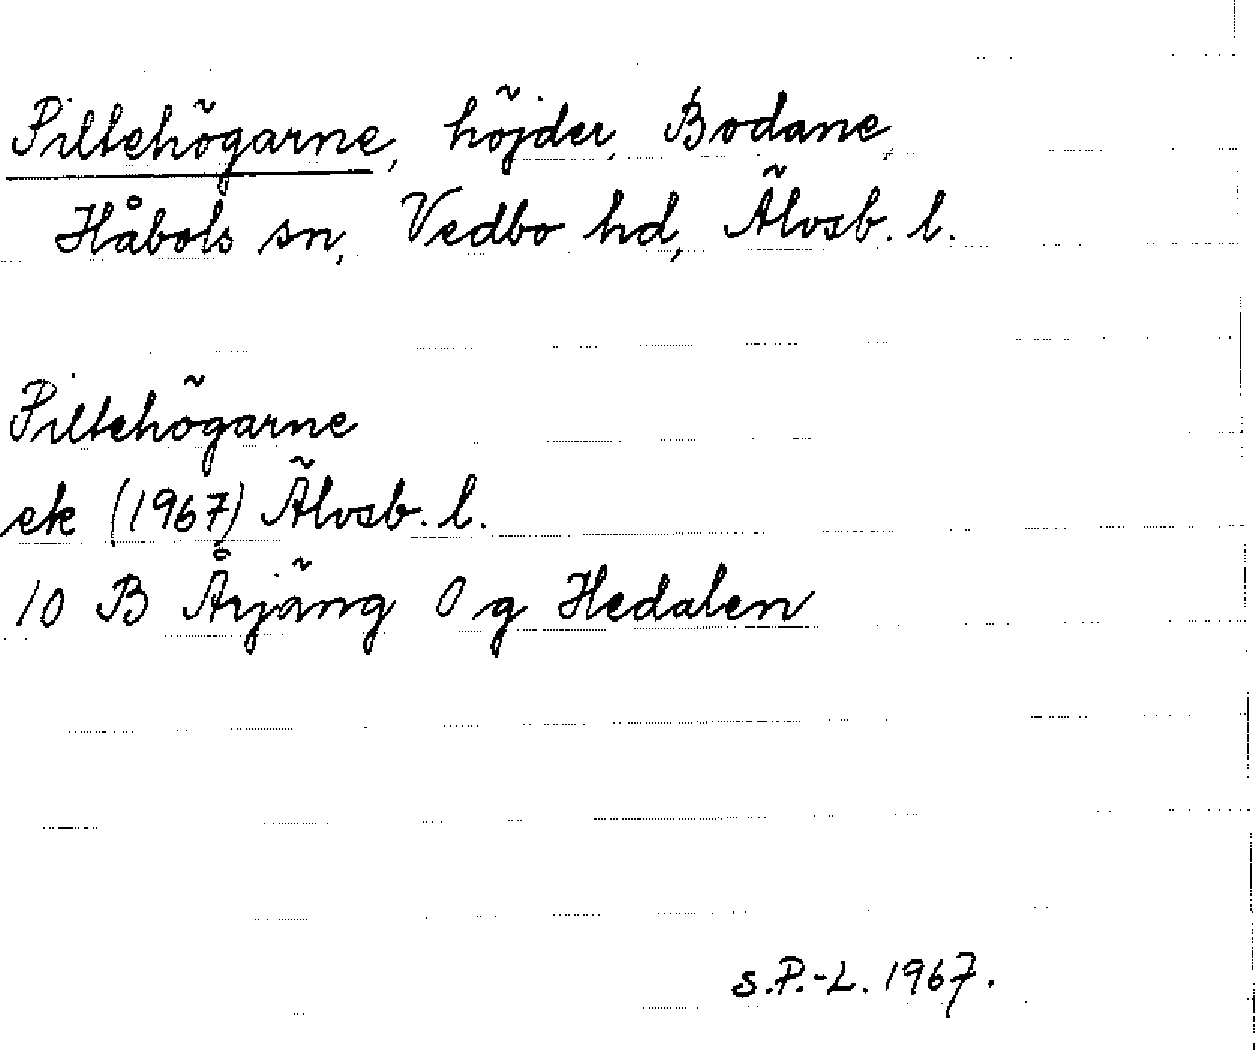 Piltehögarne, höjder, Bodane,
Håbols sn, Vedbo hd, Älvsb. l.
Piltehögarne
ek (1967) Älvsb. l.
10 B Årjäng 0 g Hedalen
s.P.-L. 1967.